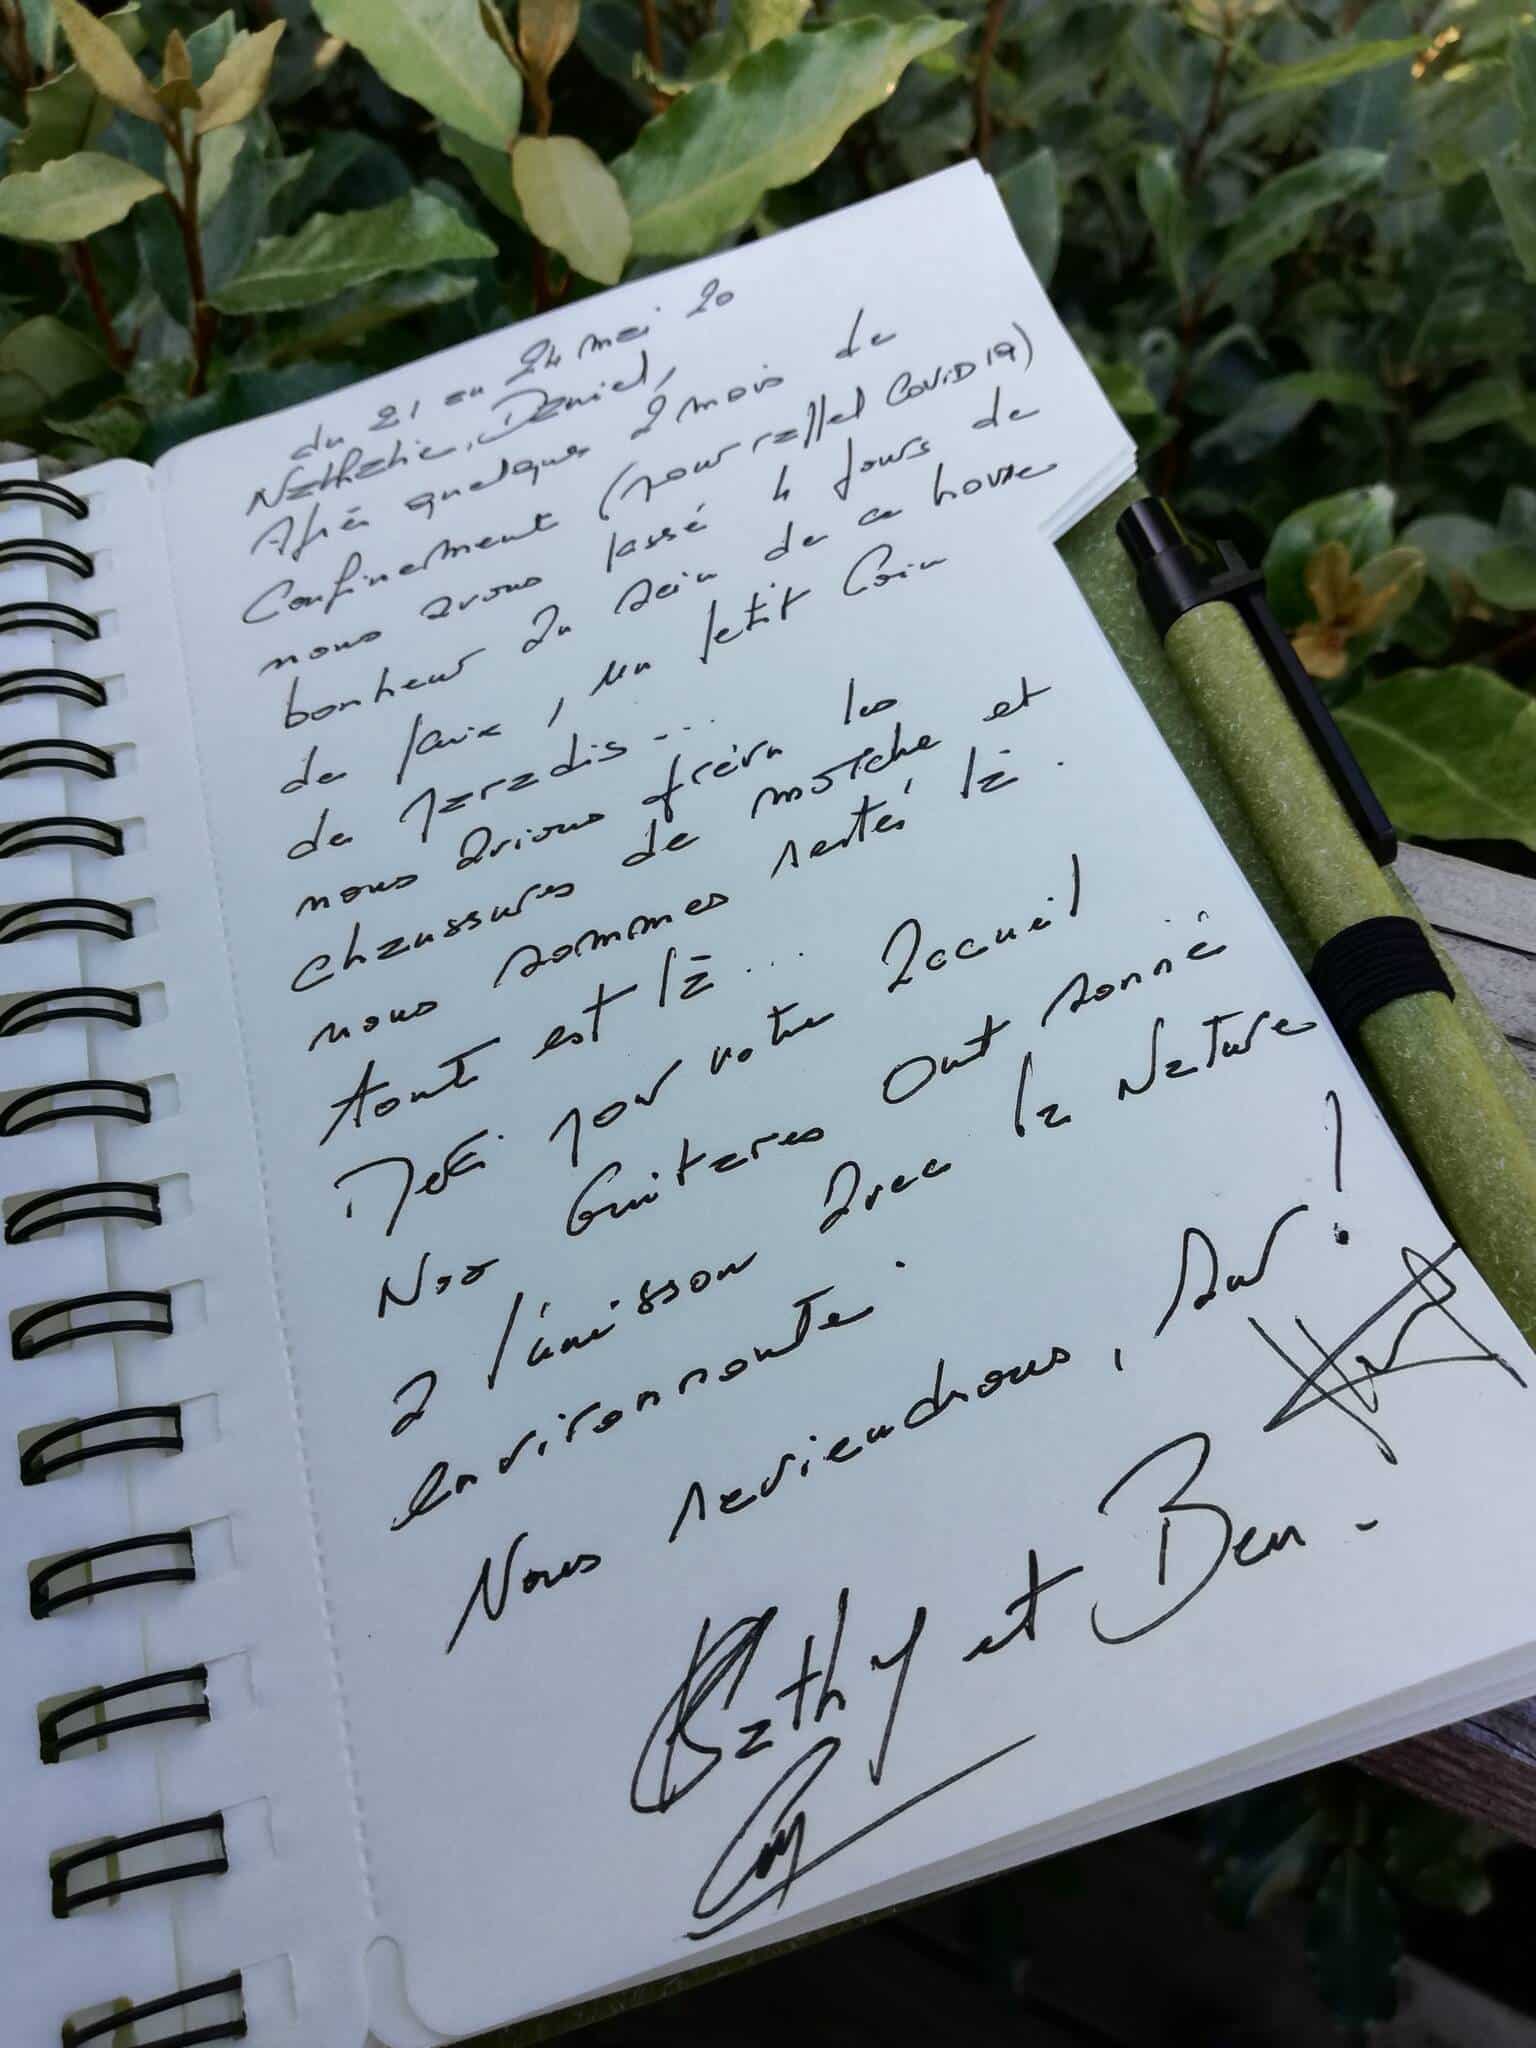 du 21 au 24 mai 20
Nathalie, Daniel,
Après quelques 2 mois de
Confinement (pour rappel COVID 19)
nous avons passé 4 jours de
bonheur au sein de ce havre
de paix, un petit Coin
de paradis...
nous avions prévu les
chaussures de marche et
nous sommes restés là.
tout est là...
Merci pour votre accueil
Nos Guitares ont sonné
à l'unisson avec la Nature
environnante.
Nous reviendrons, sur!
Cathy et Ben.